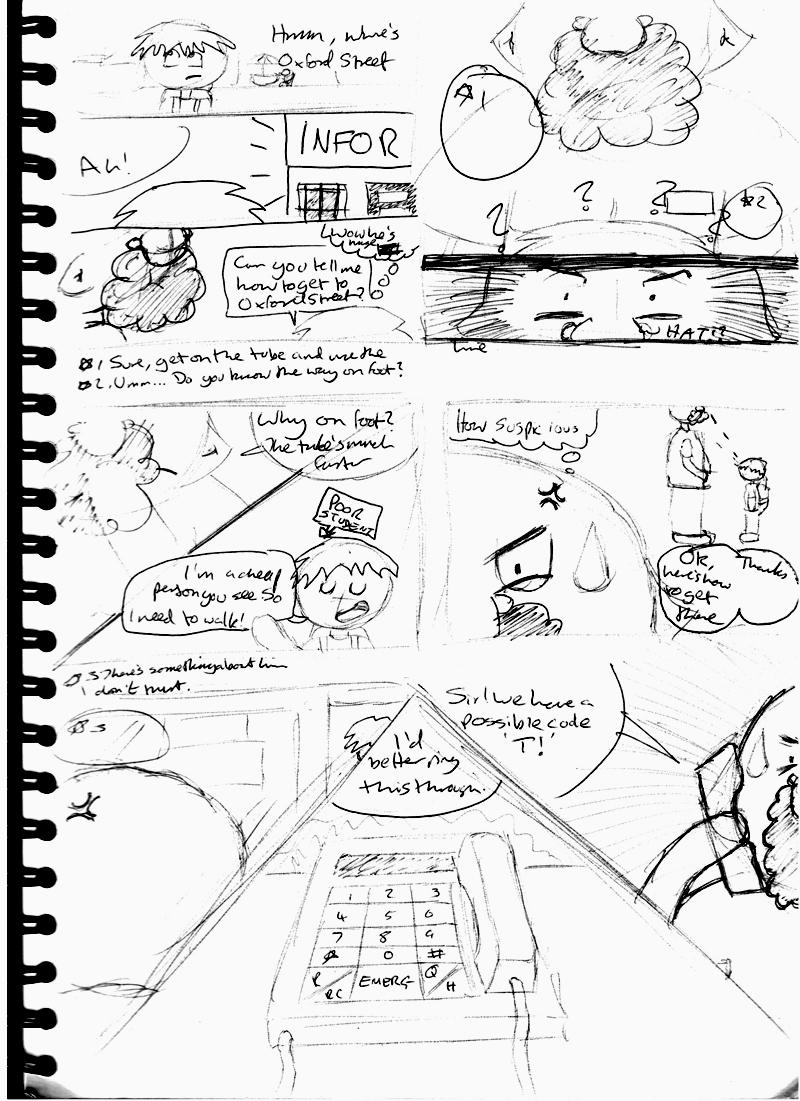 Hmm, where's
Oxford Street
Ah!
INFOR
Wow he's
huge
Can you tell me
how to get to
Oxford Street?
1 Sure, get on the tube and use the
2. Umm... Do you know the way on foot?
1
? ? ? ?
2
WHAT!?
Why on foot?
The tube's much
faster
POOR
STUDENT
I'm a cheap
person you see so
I need to walk!
How suspicious
OK,
here's how
to get
there
Thanks
3 There's something about him
I don't trust.
3
I'd
better ring
this through.
Sir! We have a
possible code
'T!'
1 2 3
4 5 6
7 8 9
0 #
R
RC
EMERG
Q
H